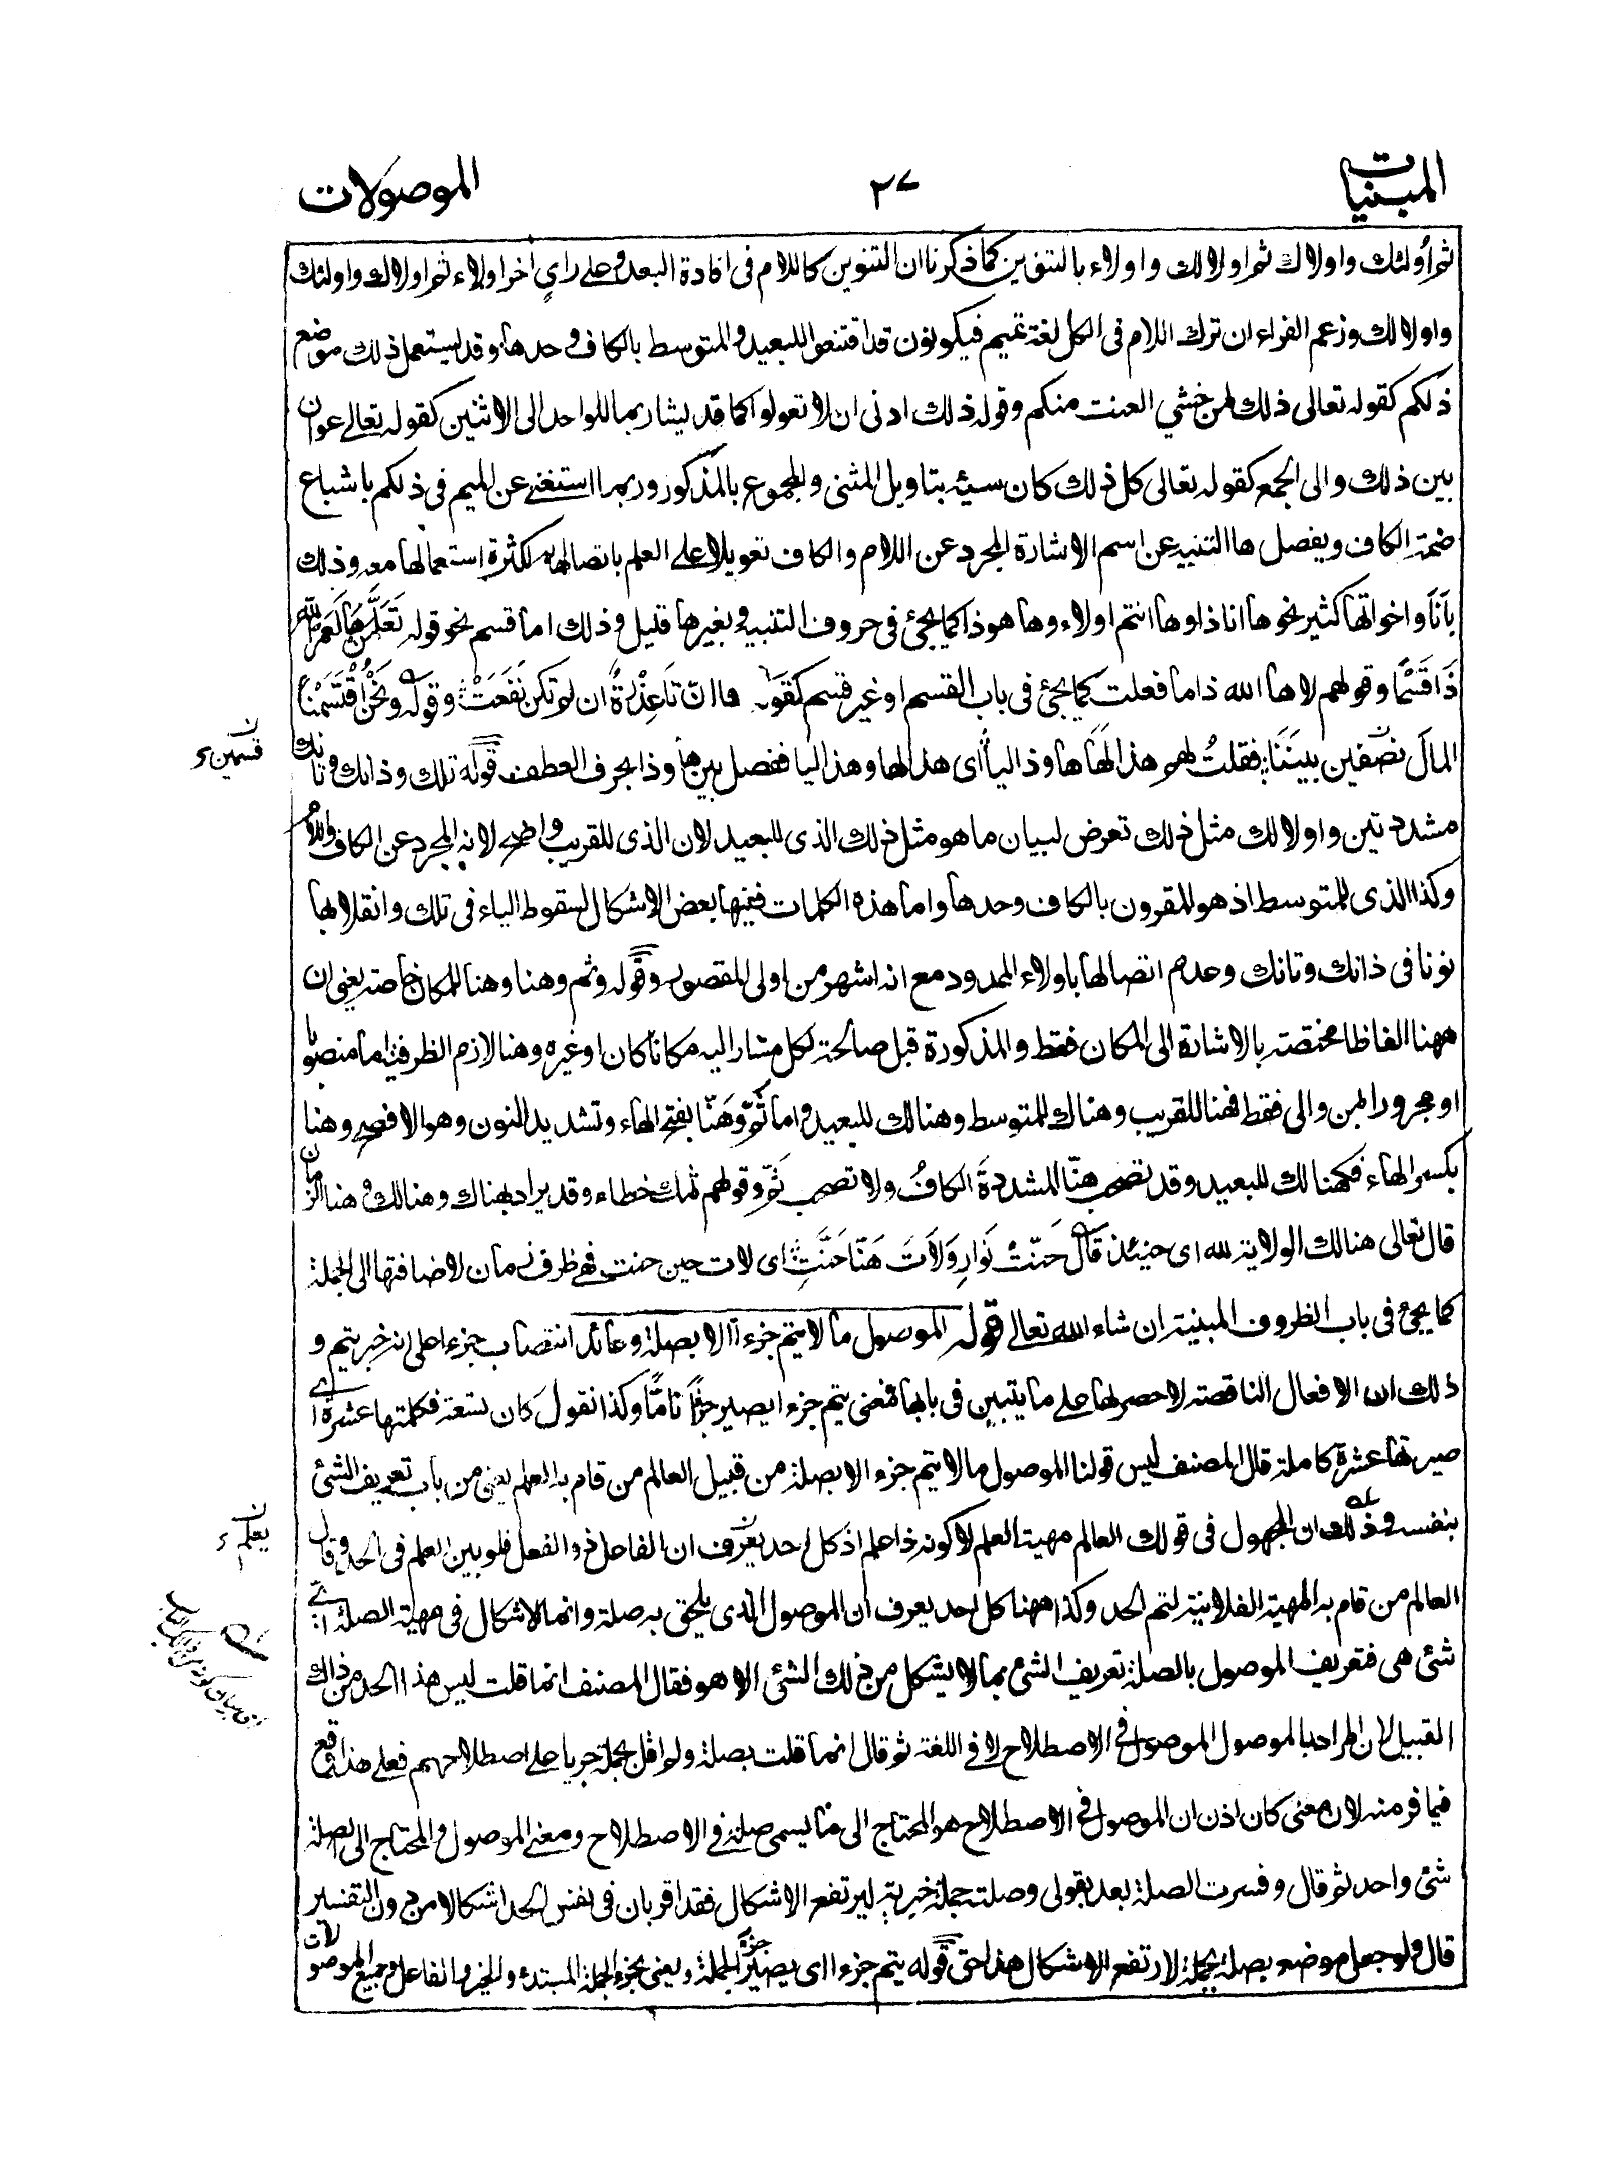 المبنيات
٢٧
الموصولات
ثم أولئك واولاك ثم اولالك واولاء بالتنوين كما ذكرنا ان التنوين كاللام فى افادة البعد وعلى راي اخر اولاء ثم اولاك واولئك
واولالك وزعم الفراء ان ترك اللام فى الكل لغة تميم فيكونون قد اقتنعوا للبعيد والمتوسط بالكاف وحدها وقد يستعمل ذلك موضع
ذلكم كقوله تعالى ذلك لمن خشي العنت منكم وقوله ذلك ادنى ان لا تعولوا كما قد يشار بما للواحد الى الاثنين كقوله تعالى عوان
بين ذلك والى الجمع كقوله تعالى كل ذلك كان سيئه بتاويل المثنى والمجموع بالمذكور وربما استغنى عن الميم فى ذلكم باشباع
ضمة الكاف ويفصل ها التنبيه عن اسم الاشارة المجرد عن اللام والكاف تعويلا على العلم باتصالها به لكثرة استعمالها معه وذلك
بأنا واخواتها كثير نحو ها انا ذا وها انتم اولاء وها هو ذا كما يجئ فى حروف التنبيه وبغيرها قليل وذلك اما قسم نحو قوله تَعَلَّمَنْ هَا لَعَمْرُ الله
ذَا قَسَمًا وقولهم لا ها الله ذا ما فعلت كما يجئ فى باب القسم او غير قسم كقوله ها انّ تا عِذْرةٌ ان لم تكن نَفَعَتْ وقوله ونَحْنُ اقْتَسَمْنَا
المالَ نصفين بينَنَا فقلتُ لهم هذا لَهَا ها وذا ليا أى هذا لها وهذا ليا ففصل بين ها وذا بحرف العطف قوله تلك وذانك وتانك
مشددتين واولالك مثل ذلك تعرض لبيان ما هو مثل ذلك الذى للبعيد لان الذى للقريب واضح لانه المجرد عن الكاف واللام
وكذا الذى للمتوسط اذ هو المقرون بالكاف وحدها واما هذه الكلمات ففيها بعض الاشكال لسقوط الياء فى تلك وانقلابها
نونا فى ذانك وتانك وعدم اتصالها باولاء الممدود مع انه اشهر من اولى المقصور وقوله وثم وهنا وهنا للمكان خاصة يعنى ان
ههنا الفاظا مختصة بالاشارة الى المكان فقط والمذكورة قبل صالحة لكل مشار اليه مكانا كان او غيره وهنا لازم الظرفية اما منصوبا
او مجرورا بمن والى فقط فهنا للقريب وهناك للمتوسط وهنالك للبعيد واما ثَمّ وهَنّا بفتح الهاء وتشديد النون وهو الافصح وهنا
بكسر الهاء فكهنالك للبعيد وقد تصحب هنّا المشددةَ الكافُ ولا تصحب ثَمّ وقولهم ثمك خطاء وقد يراد بهناك وهنالك وهنا الزمان
قال تعالى هنالك الولاية لله اى حينئذ قال حَنّت نَوارِ وَلَاتَ هَنّا حَنَّتِ اى لات حين حنت فهى ظرف زمان لاضافتها الى الجملة
كما يجئ فى باب الظروف المبنية ان شاء الله تعالى قوله الموصول ما لا يتم جزءا الا بصلة وعائد انتصاب جزءا على انه خبر يتم و
ذلك ان الافعال الناقصة لا حصر لها على ما يتبين فى بابها فمعنى يتم جزءا يصير جزأ تامًّا وكذا نقول كان تسعة فكلمتها عشرة اى
صيرتها عشرة كاملة قال المصنف ليس قولنا الموصول ما لا يتم جزء الا بصلة من قبيل العالم من قام به العلم يعنى من باب تعريف الشئ
بنفسه وذلك ان المجهول فى قولك العالم مهية العلم لا كونه ذا علم اذ كل احد يعرف ان الفاعل ذو الفعل فلو بين العلم فى الحد وقال
العالم من قام به المهية الفلانية لتم الحد وكذا ههنا كل احد يعرف ان الموصول الذى يلحق به صلة وانما الاشكال فى مهية الصلة اى
شئ هى فتعريف الموصول بالصلة تعريف الشئ بما لا يشكل من ذلك الشئ الا هو فقال المصنف انما قلت ليس هذا الحد من ذلك
القبيل لان المراد بالموصول الموصول فى الاصطلاح لا فى اللغة ثم قال انما قلت بصلة ولم اقل بجملة جريا على اصطلاحهم فعلى هذا وقع
فيما فر منه لان معنى كان اذن ان الموصول فى الاصطلاح هو المحتاج الى ما يسمى صلة فى الاصطلاح ومعنى الموصول والمحتاج الى صلة
شئ واحد ثم قال وفسرت الصلة بعد بقولى وصلته جملة خبرية ليرتفع الاشكال فقد اقر بان فى نفس الحد اشكالا من دون التفسير
قال ولو جعل موضع بصلة بجملة لارتفع الاشكال هذا حق قوله يتم جزءا اى يصير جزء الجملة ويعنى بجزء الجملة المبتدء والخبر والفاعل وجميع الموصولات
قسمين
يعلم